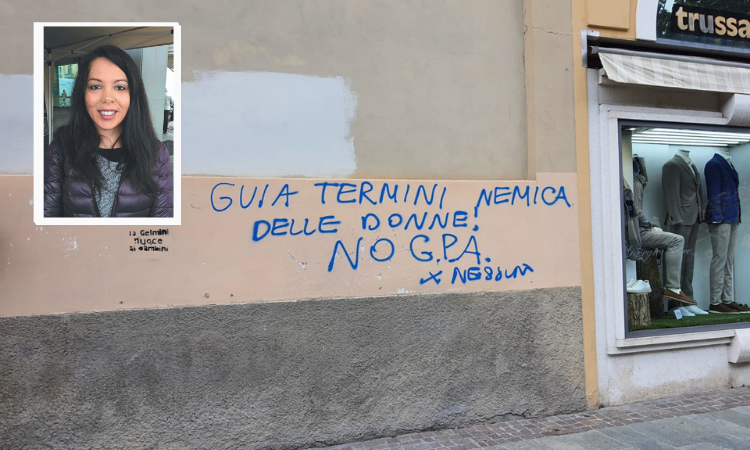 trussa
GUIA TERMINI NEMICA
DELLE DONNE!
NO G.P.A.
x NESSUNA
la Gelmini
nuoce
ai bambini